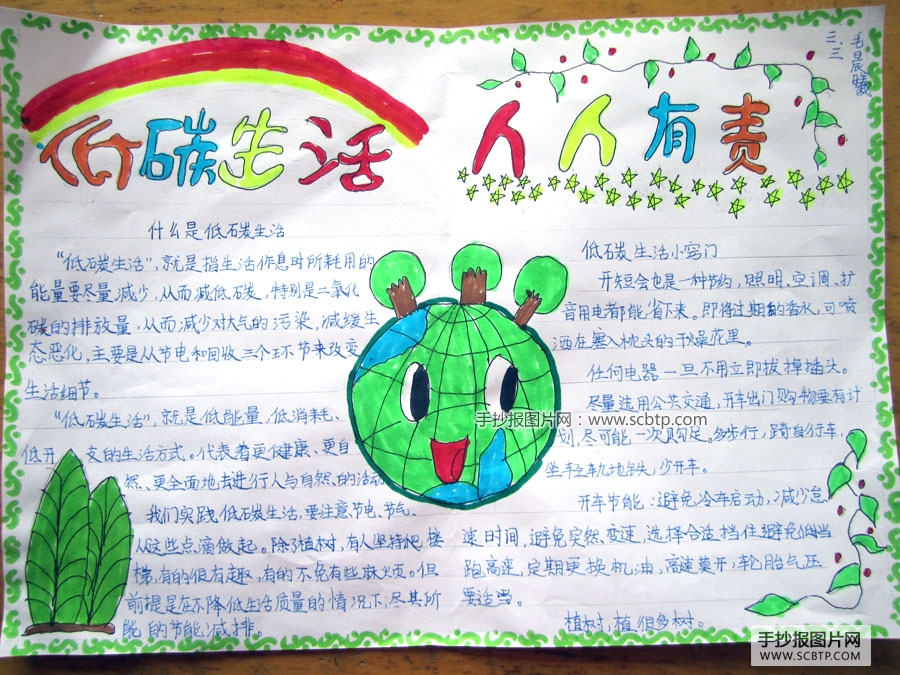 低碳生活
人人有责
三.三
毛晨曦
什么是低碳生活
“低碳生活”，就是指生活作息时所耗用的
能量要尽量减少，从而减低碳，特别是二氧化
碳的排放量，从而减少对大气的污染，减缓生
态恶化，主要是从节电和回收三个环节来改变
生活细节。
“低碳生活”，就是低能量，低消耗、
低开支的生活方式。代表着更健康、更自
然、更全面地去进行人与自然的活动
我们实践低碳生活，要注意节电、节气、
从这些点滴做起。除了植树，有人坚持爬楼
梯，有的很有趣，有的不免有些麻烦。但
前提是在不降低生活质量的情况下，尽其所
能的节能减排。
低碳生活小窍门
开短会也是一种节约，照明、空调、扩
音用电都能省下来。即将过期的香水，可喷
洒在塞入枕头的干燥花里。
任何电器一旦不用立即拔掉插头。
尽量选用公共交通，开车出门购物要有计
划，尽可能一次购足。多步行，骑自行车，
坐轻轨地铁，少开车。
开车节能：避免冷车启动，减少怠
速时间，避免突然变速，选择合适挡住避免低当
跑高速，定期更换机油，高速莫开，轮胎气压
要适当。
植树，植很多树。
手抄报图片网：www.scbtp.com
手抄报图片网
WWW.SCBTP.COM